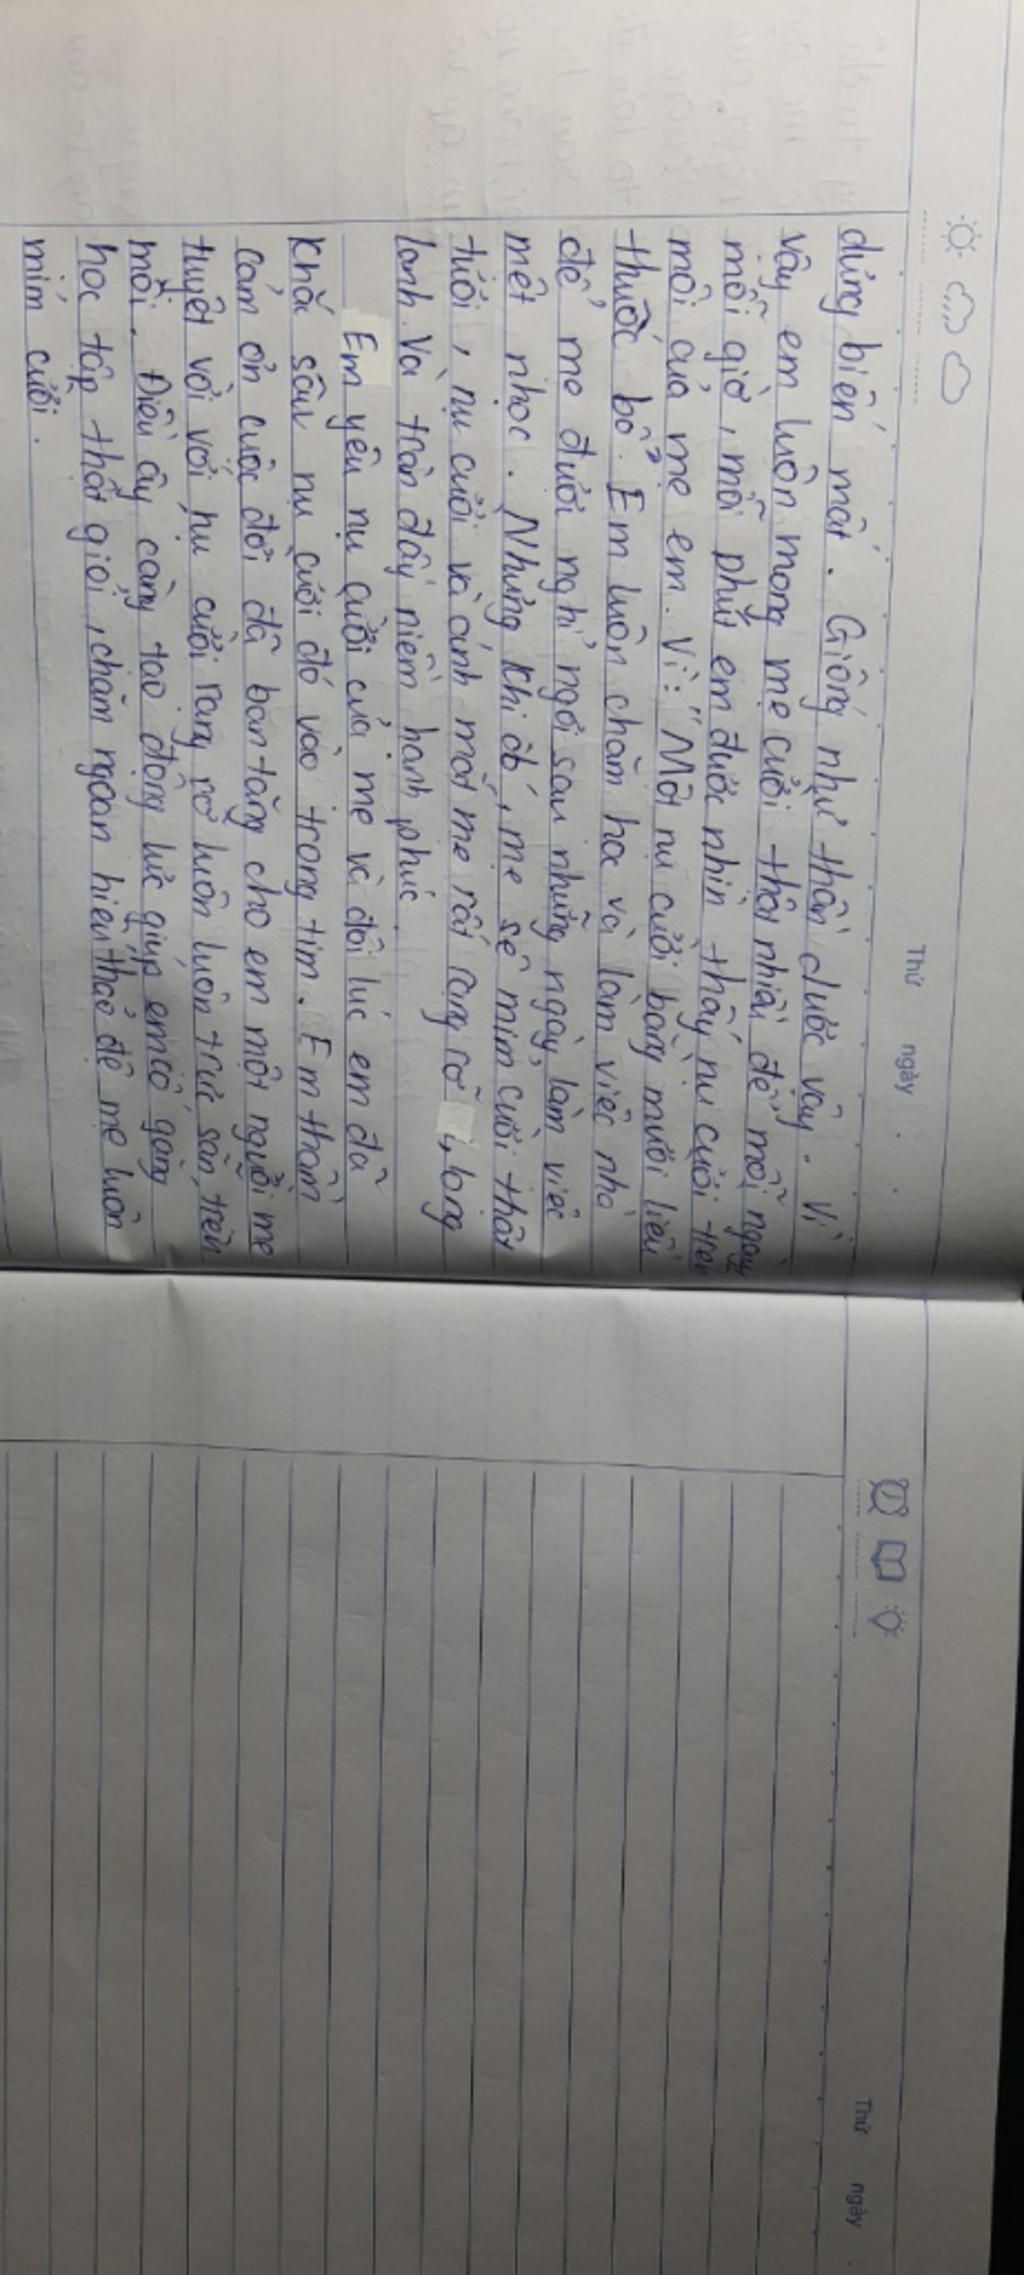 Thứ ngày
dưng biến mất. Giống như thần dược vậy. Vì
vậy em luôn mong mẹ cười thật nhiều để mỗi ngày,
mỗi giờ, mỗi phút em được nhìn thấy nụ cười trên
môi của mẹ em. Vì: "Một nụ cười bằng mười liều
thuốc bổ". Em luôn chăm học và làm việc nhà
để mẹ được nghỉ ngơi sau những ngày làm việc
mệt nhọc. Những khi đó, mẹ sẽ mỉm cười thật
tươi, nụ cười và ánh mắt mẹ rất rạng rỡ, long
lanh. Và tràn đầy niềm hạnh phúc
Em yêu nụ cười của mẹ và đôi lúc em đã
khắc sâu nụ cười đó vào trong tim. Em thầm
cảm ơn cuộc đời đã ban tặng cho em một người mẹ
tuyệt vời với nụ cười rạng rỡ luôn luôn trực sẵn trên
môi. Điều ấy càng tạo động lực giúp em cố gắng
học tập thật giỏi, chăm ngoan hiếu thảo để mẹ luôn
mỉm cười.
Thứ ngày